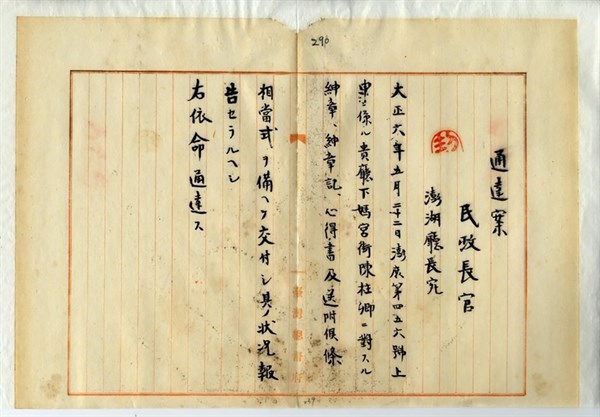 290
通達案
民政長官
澎湖廳長宛
大正六年五月二十二日澎庶第四五六號上
申ニ係ル貴廳下媽宮街陳柱卿ニ對スル
紳章、紳章記、心得書及送附候條
相當式ヲ備ヘテ交付シ其ノ状況報
告セラルヘシ
右依命通達ス
臺灣總督府